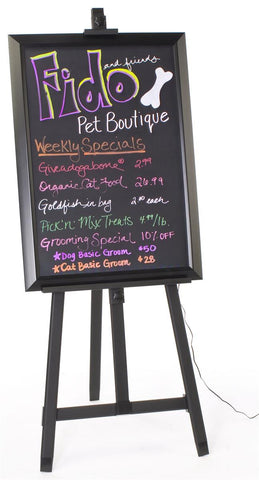 Fido
and friends
Pet Boutique
Weekly Specials
Giveadogabone® 2.99
Organic Cat Food 26.99
Goldfish in bag 2.00 each
Pick'n' Mix Treats 4.99/lb.
Grooming Special 10% OFF
★Dog Basic Groom $50
★Cat Basic Groom $28